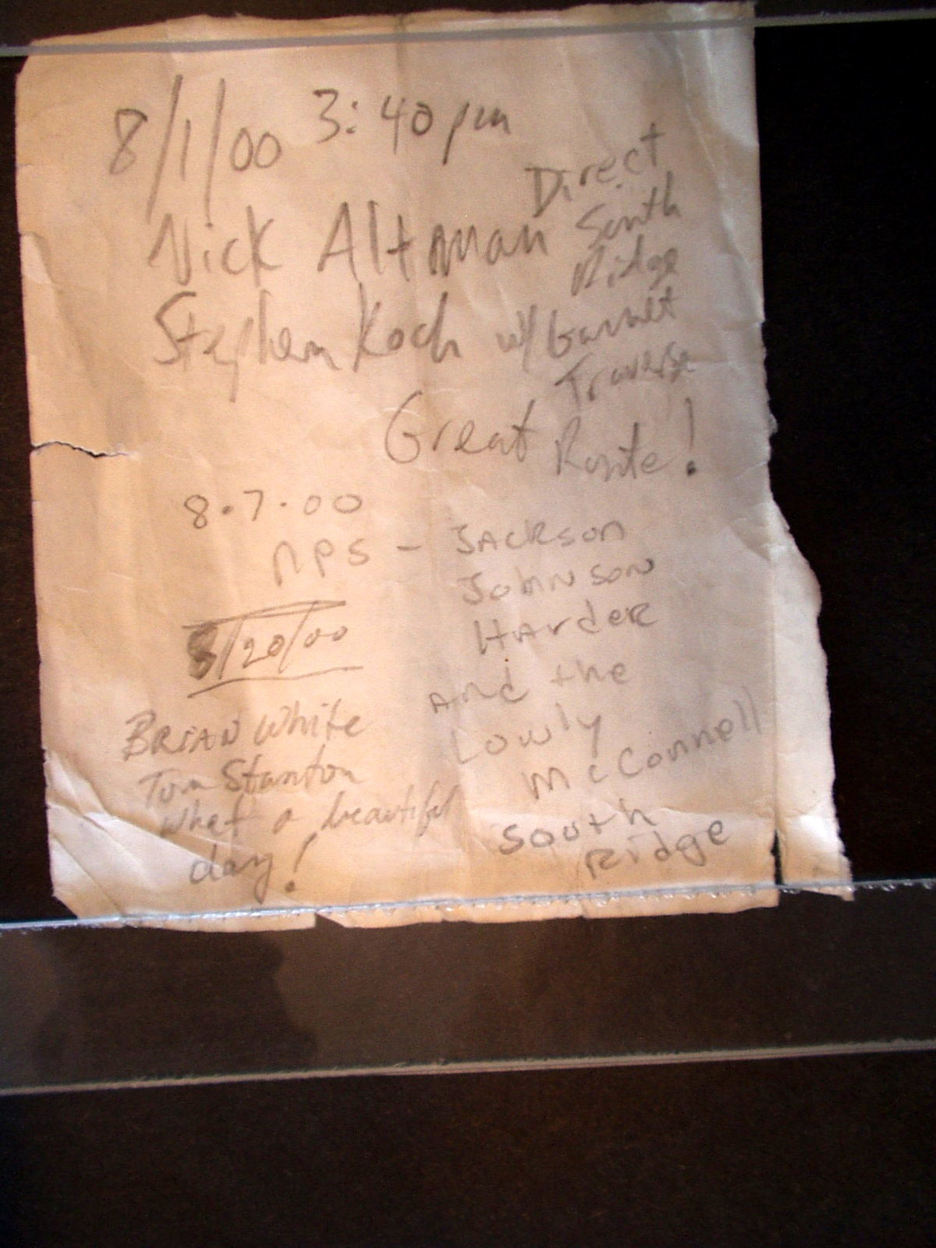 8/1/00 3:40 pm
Nick Altman
Stephen Koch
Direct
South
Ridge
w/ Garnet
Traverse
Great Route!
8.7.00
NPS - JACKSON
JOHNSON
HARDER
And the
Lowly
McConnell
South
Ridge
8/20/00
BRIAN White
Tom Stanton
What a beautiful
day!